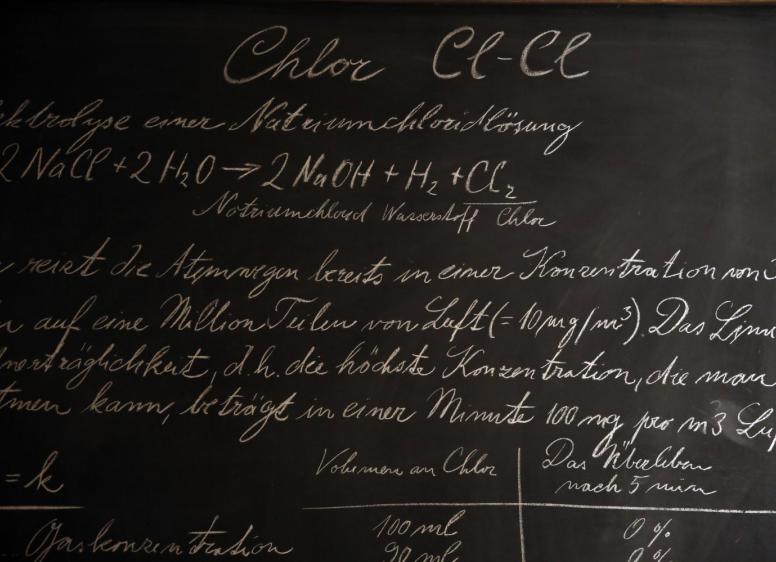 Chlor Cl-Cl
ektrolyse einer Natriumchloridlösung
2 NaCl + 2 H₂O → 2 NaOH + H₂ + Cl₂
Natriumchlorid Wasserstoff Chlor
reizt die Atemwegen bereits in einer Konzentration von
auf eine Million Teilen von Luft (= 10 mg/m³). Das
nverträglichkeit, d.h. die höchste Konzentration, die man
tmen kann, beträgt in einer Minute 100 mg pro m3 Luf
= k
Volumen an Chlor
Das Überleben
nach 5 min
Gaskonzentration
100 ml 0 %
90 ml 0 %